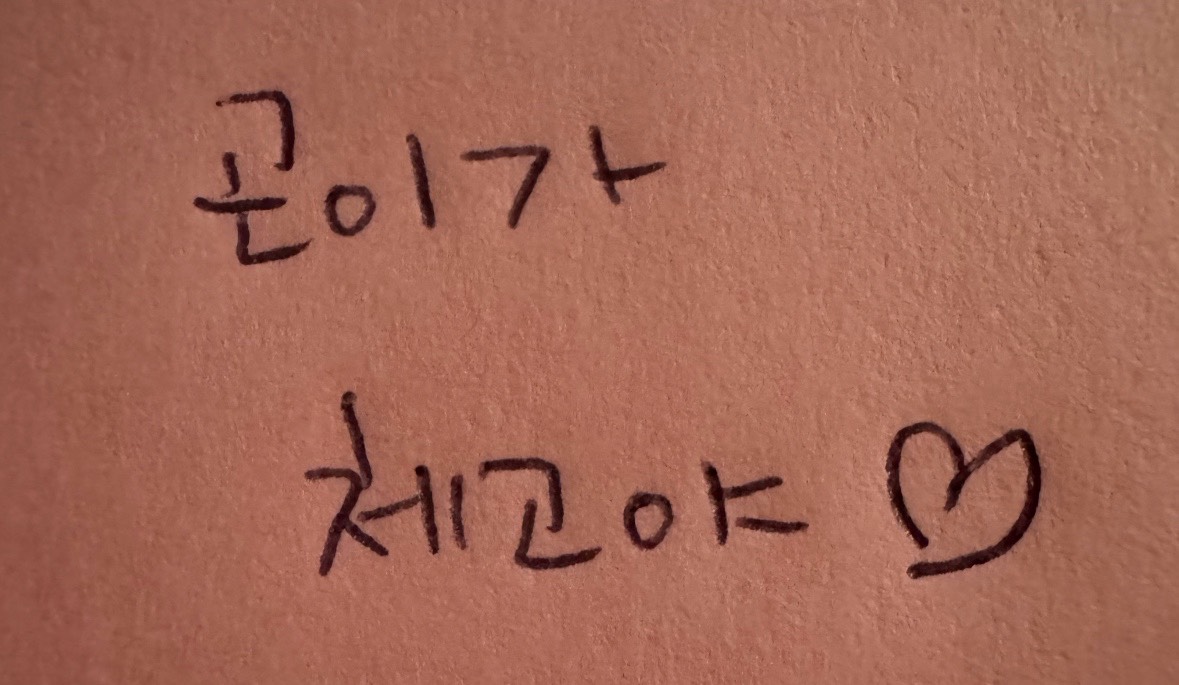 곤이가
체고야 ♡